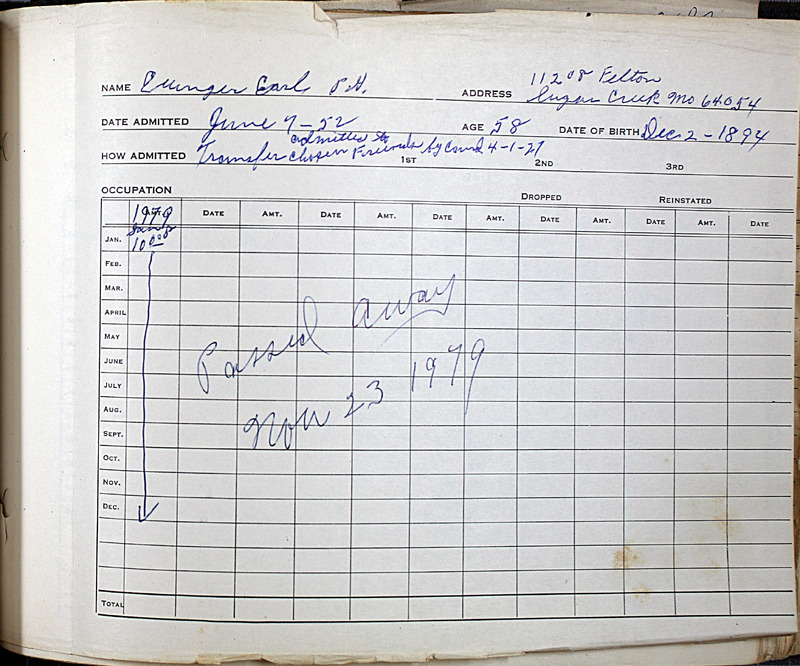 NAME Earl P.G. ADDRESS 11208 Felton
Sugar Creek Mo 64054
DATE ADMITTED June 7-52 AGE 58 DATE OF BIRTH Dec 2-1894
admitted to
HOW ADMITTED Transfer Chosen Friends by Card 4-1-27 1ST 2ND 3RD
OCCUPATION DROPPED REINSTATED
1979 AMT. DATE AMT. DATE AMT. DATE AMT. DATE AMT. DATE AMT. DATE
JAN. 10.00
FEB.
MAR.
APRIL
MAY
JUNE
JULY
AUG.
SEPT.
OCT.
NOV.
DEC.
TOTAL
Passed away
Nov 23 1979